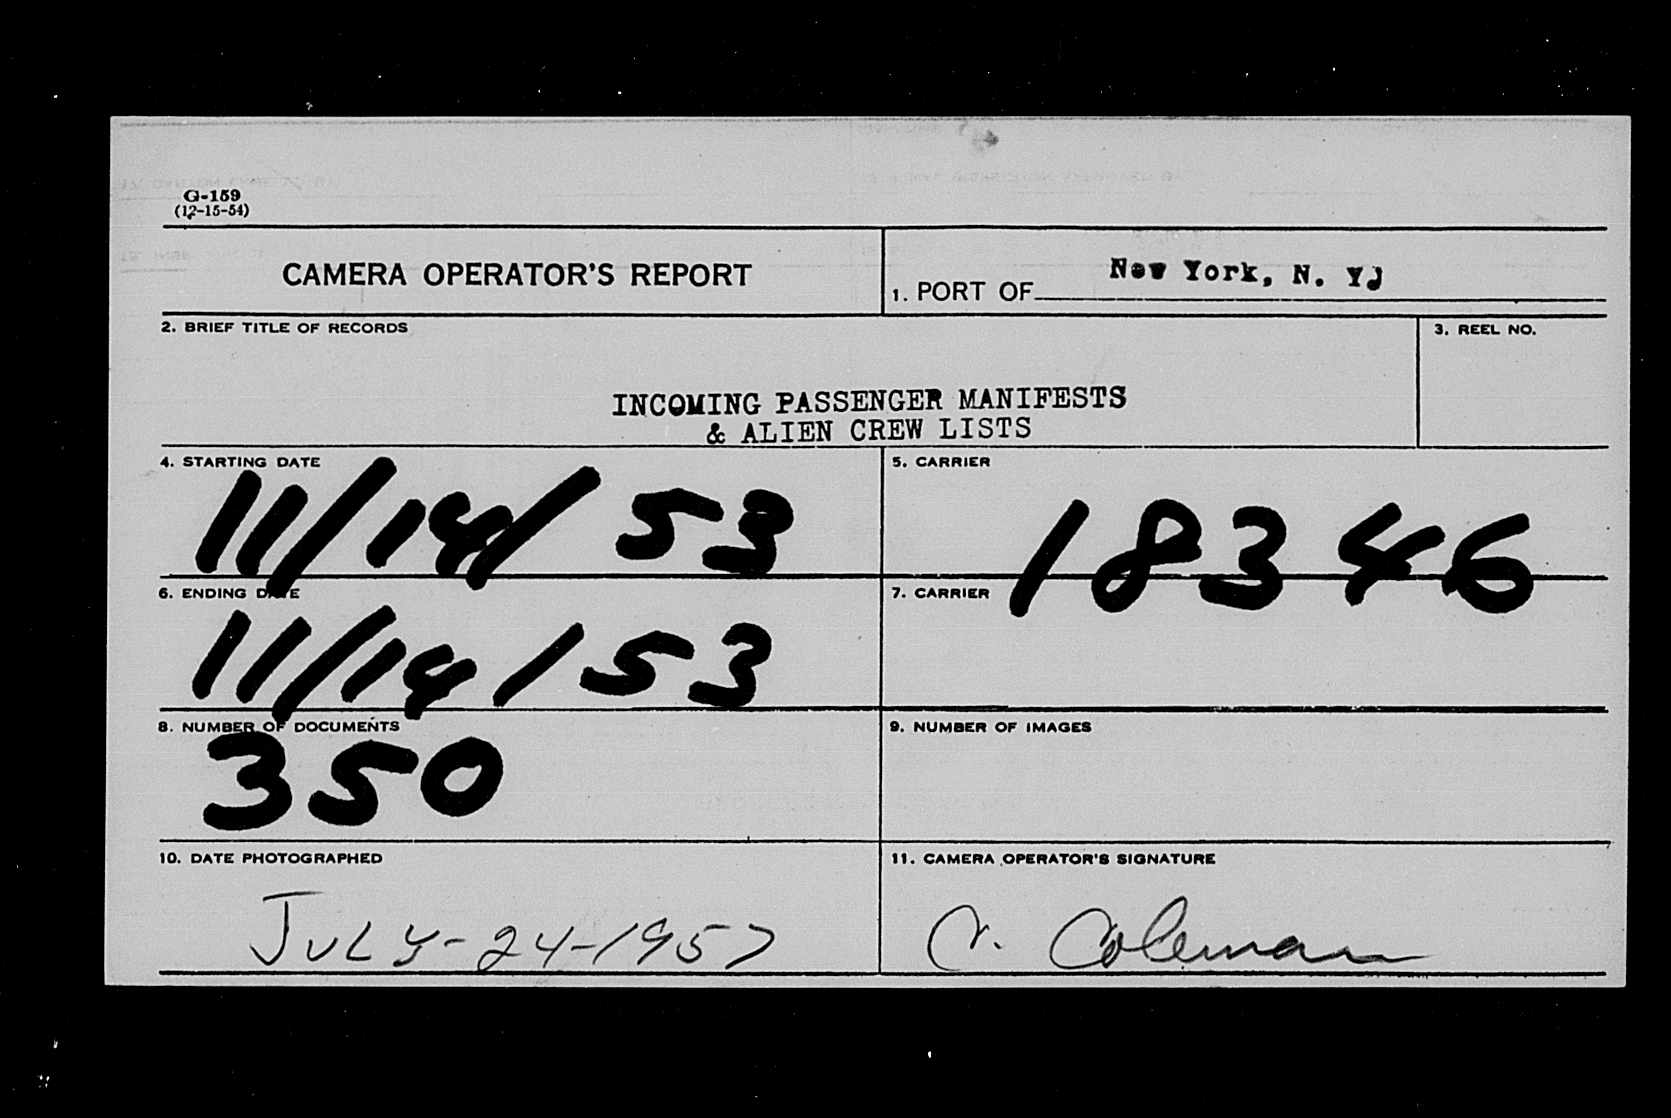 G-159
(12-15-54)
CAMERA OPERATOR'S REPORT
1. PORT OF New York, N. Y.
2. BRIEF TITLE OF RECORDS
3. REEL NO.
INCOMING PASSENGER MANIFESTS
& ALIEN CREW LISTS
4. STARTING DATE
11/14/53
5. CARRIER
18346
6. ENDING DATE
11/14/53
7. CARRIER
8. NUMBER OF DOCUMENTS
350
9. NUMBER OF IMAGES
10. DATE PHOTOGRAPHED
JULY-24-1957
11. CAMERA OPERATOR'S SIGNATURE
Coleman